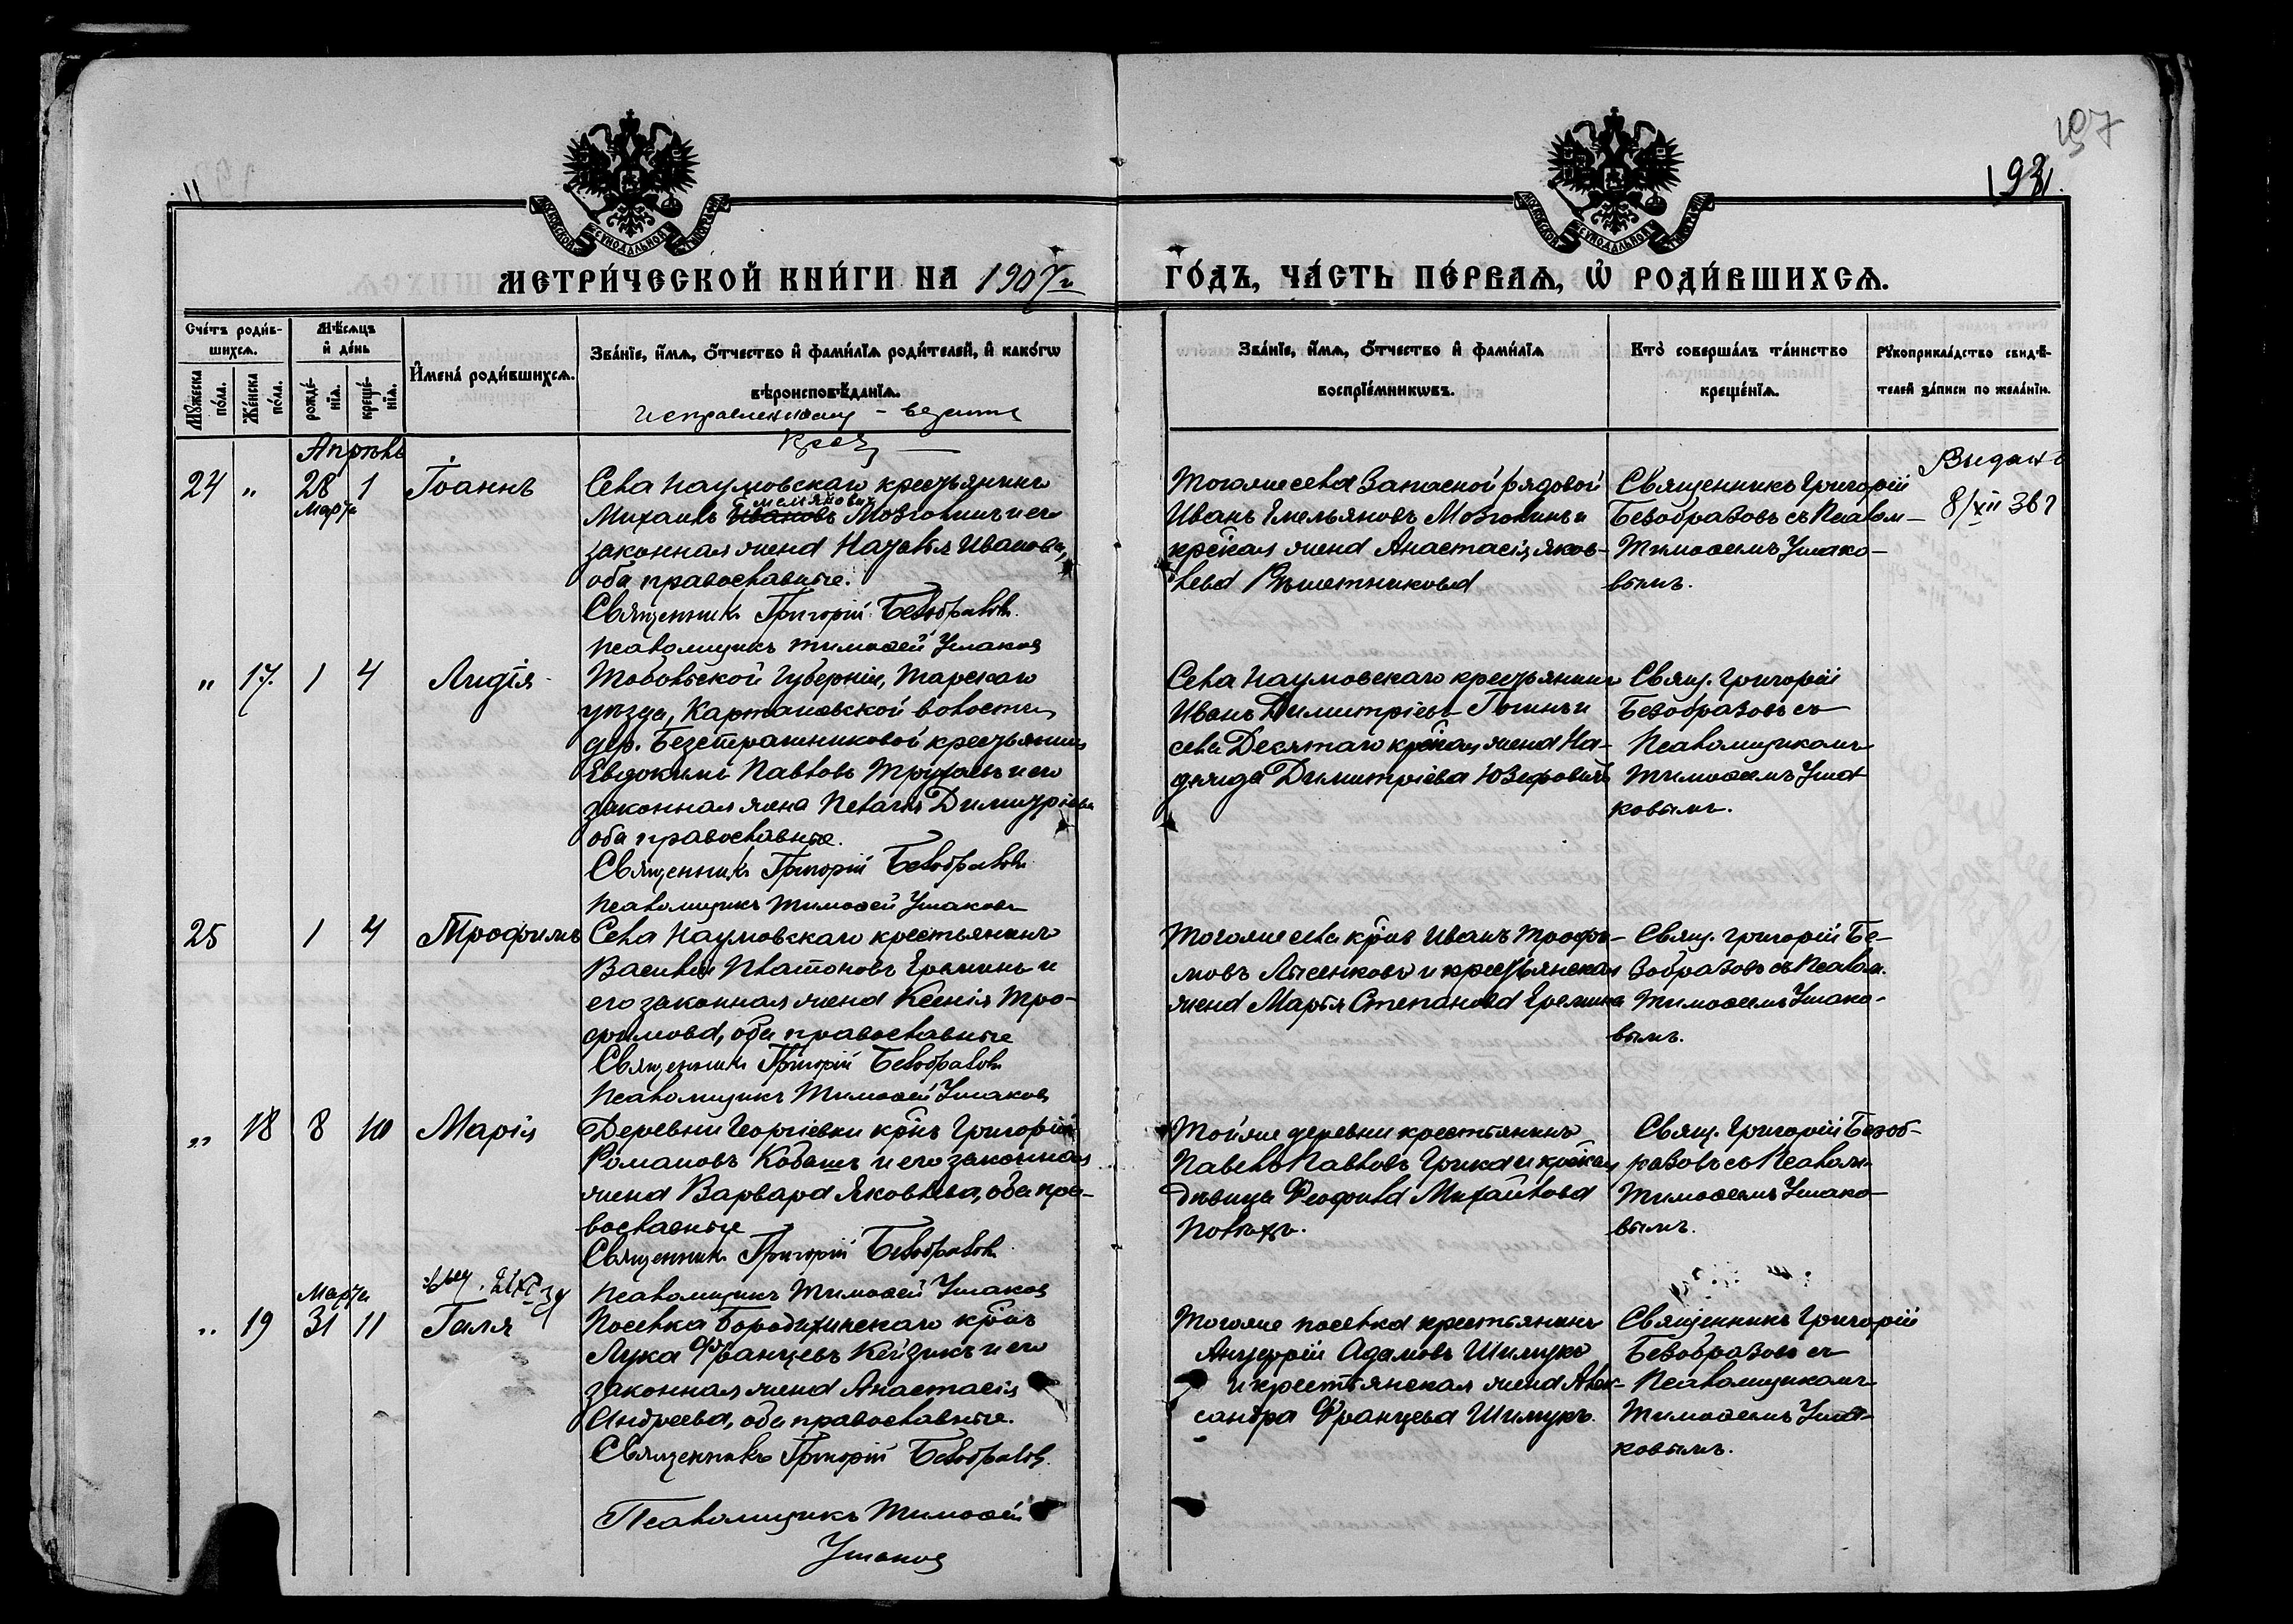 197
193
МЕТРИ́ЧЕСКОЙ КНИ́ГИ НА 1907 г
ГО́ДЪ, ЧА́СТЬ ПЕ́РВАѦ, Ѡ҆ РОДИ́ВШИХСѦ.
Сче́тъ роди́в-
шихсѧ.
Мѣ́сѧцъ
и҆ де́нь
Мꙋ́жеска
по́ла.
Же́нска
по́ла.
рожде́-
нїѧ.
креще́-
нїѧ.
И҆мена̀ роди́вшихсѧ.
Зва́нїе, и҆́мѧ, ѻ҆́тчество и҆ фами́лїѧ роди́телей, и҆ како́гѡ
вѣроисповѣ́данїѧ.
Зва́нїе, и҆́мѧ, ѻ҆́тчество и҆ фами́лїѧ
воспрїе́мникѡвъ.
Кто̀ соверша́лъ та́инство
креще́нїѧ.
Рꙋкоприкла́дство свидѣ́-
телей за́писи по жела́нїю.
Апрѣль
24 " 28 1 Іоаннъ
Марта
Села Наумовскаго крестьянинъ
Михаилъ Ивановъ Мозголинъ и его
законная жена Наталія Иванова,
оба православные.
Священникъ Григорій Безобразовъ.
Псаломщикъ Тимоѳей Ушаковъ
Тогоже села Запасной рядовой
Иванъ Емельяновъ Мозголинъ и
кр҃ская жена Анастасія Яков-
лева
Священникъ Григорій
Безобразовъ съ Псалом-
Тимоѳеемъ Ушако-
вымъ.
Выданъ
8/XII 36 г
" 17. 1 4 Лидія
Тобольской Губерніи, Тарскаго
уѣзда, Карташевской волости,
дер. Безстрашниковой крестьянинъ
Евдокимъ Павловъ и его
законная жена Пелагія Димитріева
оба православные.
Священникъ Григорій Безобразовъ
Псаломщикъ Тимоѳей Ушаковъ
Села Наумовскаго крестьянинъ
Иванъ Димитріевъ и
села Десятаго кр҃ская жена На-
дежда Димитріева Юзефовичъ
Свящ. Григорій
Безобразовъ съ
Псаломщикомъ
Тимоѳеемъ Уша-
ковымъ.
25 1 4 Трофимъ
Села Наумовскаго крестьянинъ
Василій Платоновъ Ереминъ и
его законная жена Ксенія Тро-
фимова, оба православные
Священникъ Григорій Безобразовъ
Псаломщикъ Тимоѳей Ушаковъ
Тогоже села кр҃нъ Иванъ Трофи-
мовъ Лысенковъ и крестьянская
жена Марія Степанова Еремина
Свящ. Григорій Бе-
зобразовъ съ Псалом.
Тимоѳеемъ Ушако-
вымъ.
" 18 8 10 Марія
Деревни Георгіевки кр҃нъ Григорій
Романовъ Кобашъ и его законная
жена Варвара Яковлева, оба пра-
вославные
Священникъ Григорій Безобразовъ
Псаломщикъ Тимоѳей Ушаковъ
Тойже деревни крестьянинъ
Павелъ Павловъ Грика и кр҃ская
дѣвица Ѳеофила Михайлова
Свящ. Григорій Безоб-
разовъ съ Псалом.
Тимоѳеемъ Ушако-
вымъ.
Марта
" 19 31 11 Галя
Поселка Бородихинскаго кр҃нъ
Лука Францевъ Кейзикъ и его
законная жена Анастасія
Андреева, оба православные.
Священникъ Григорій Безобразовъ.
Псаломщикъ Тимоѳей
Ушаковъ
Тогоже поселка крестьянинъ
Адамовъ Шимукъ
и крестьянская жена Алек-
сандра Францева Шимукъ.
Священникъ Григорій
Безобразовъ съ
Псаломщикомъ
Тимоѳеемъ Уша-
ковымъ.